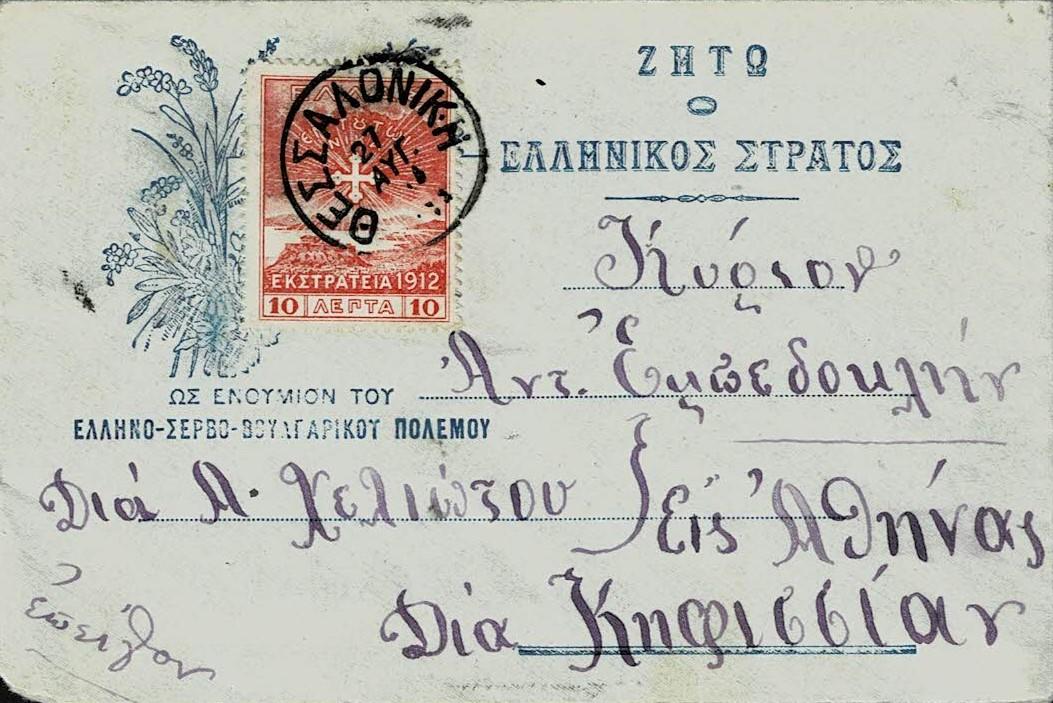 ΖΗΤΩ
Ο
ΕΛΛΗΝΙΚΟΣ ΣΤΡΑΤΟΣ
ΘΕΣΣΑΛΟΝΙΚΗ
27
ΑΥΓ.
ΕΚΣΤΡΑΤΕΙΑ 1912
10 ΛΕΠΤΑ 10
ΩΣ ΕΝΘΥΜΙΟΝ ΤΟΥ
ΕΛΛΗΝΟ-ΣΕΡΒΟ-ΒΟΥΛΓΑΡΙΚΟΥ ΠΟΛΕΜΟΥ
Κύριον
Ἀντ. Ἐμπεδοκλῆν
Διά Α. Χελιώτου
εἰς Ἀθήνας
Διά Κηφισσίαν
ἐπεῖγον